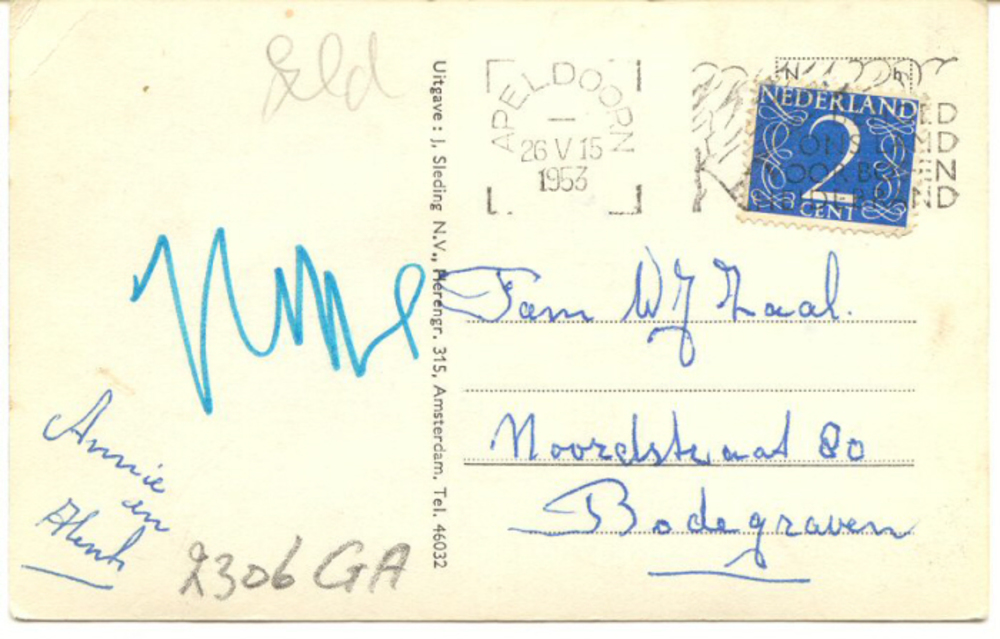 Geld
Uitgave : J. Sleding N.V., Herengr. 315, Amsterdam. Tel. 46032
APELDOORN
I
26 V 15
1953
NEDERLAND
2
CENT
Fam W J Zaal.
Noordstraat 80
Bodegraven
Annie
en
2306 GA